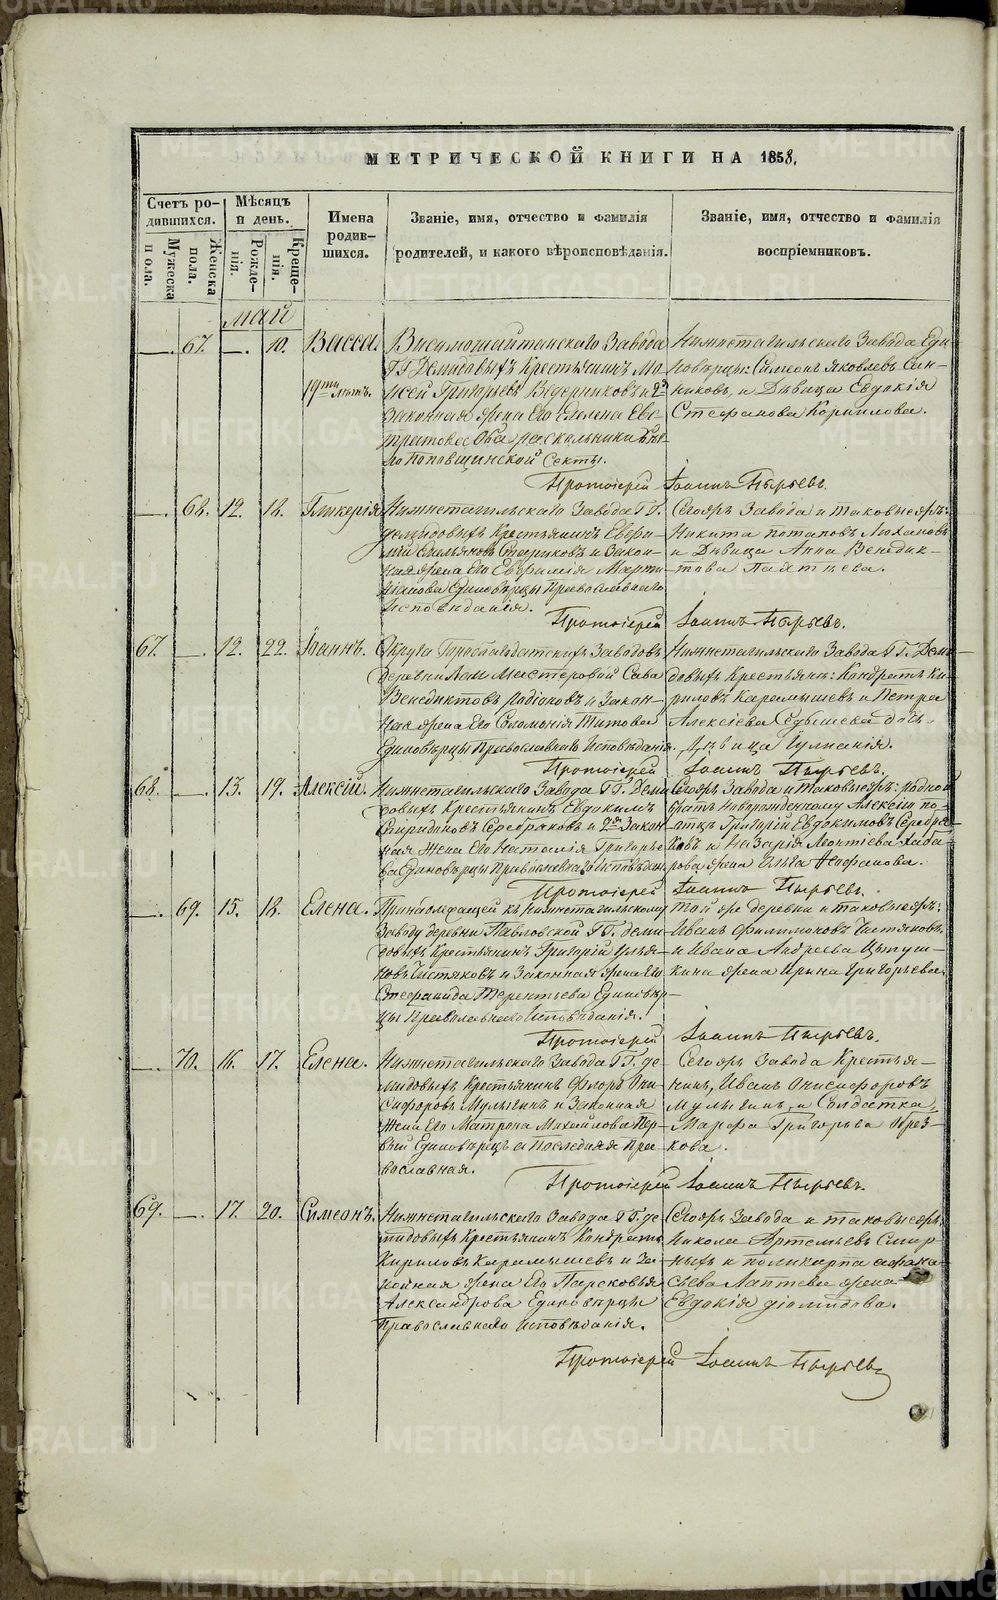 МЕТРИЧЕСКОЙ КНИГИ НА 1858.
Счетъ ро-
дившихся.
Мужеска
пола.
Женска
пола.
Мѣсяцъ
и день.
Рожде-
нія.
Креще-
нія.
Имена
родив-
шихся.
Званіе, имя, отчество и фамилія
родителей, и какого вѣроисповѣданія.
Званіе, имя, отчество и фамилія
воспріемниковъ.
май
—. 67. —. 10. Васса.
19ти лѣтъ.
Висимошайтанскаго Завода
ГГ. Демидовыхъ Крестьянинъ Мо-
исей Григорьевъ Ведерниковъ и
законная жена Его Елена
Оба раскольники
поповщинской секты.
Нижнетагильскаго Завода Еди-
новѣрцы: Симеонъ Яковлевъ Син-
никовъ, и Дѣвица Евдокія
Стефанова Корнилова.
Протоіерей Іоаннъ Пырьевъ.
—. 68. 12. 18. Гликерія
Нижнетагильскаго Завода ГГ.
Демидовыхъ Крестьянинъ Евфи-
мій и Закон-
ная жена Его Евфимія Марти-
Единовѣрцы Православнаго
Исповѣданія.
Сегожъ Завода и таковыежъ:
Никита Потаповъ
и Дѣвица Анна Венедик-
това
Протоіерей Іоаннъ Пырьевъ.
67. —. 12. 22. Іоаннъ.
Округа Гороблагодатскихъ Заводовъ
деревни Лаи Мастеровой Сава
Венедиктовъ Родіоновъ и Закон-
ная жена Его Соломонія Титова
Единовѣрцы Православнаго Исповѣданія.
Нижнетагильскаго Завода ГГ. Деми-
довыхъ Крестьян: Кондратъ Ки-
риловъ Карамышевъ и Петра
Алексіева Седышева дочь
Дѣвица Іуліанія.
Протоіерей Іоаннъ Пырьевъ.
68. —. 13. 19. Алексій.
Нижнетагильскаго Завода ГГ. Деми
довыхъ Крестьянинъ Евдокимъ
Спиридоновъ Серебряковъ и Закон-
ная Жена Его Наталія Григорье-
ва Единовѣрцы Православнаго Исповѣдан.
Сегожъ Завода и таковыежъ: родной
братъ новорожденному Алексію по
отцѣ Григорій Евдокимовъ Серебря-
ковъ и Назарія Леонтіева Хаба-
рова жена
Протоіерей Іоаннъ Пырьевъ.
—. 69. 15. 18. Елена.
Принадлежащей къ Нижнетагильскому
Заводу деревни Павловской ГГ. Деми
довыхъ Крестьянинъ Григорій Илья-
новъ Чистяковъ и Законная жена Его
Стефанида Терентьева Единовѣр-
цы Православнаго Исповѣданія.
Той же деревни и таковыежъ:
Иванъ Филимоновъ Чистяковъ
и Ивана Андреева
жена Ирина Григорьева.
Протоіерей Іоаннъ Пырьевъ.
—. 70. 16. 17. Елена.
Нижнетагильскаго Завода ГГ. Де-
мидовыхъ Крестьянинъ Флоръ Они-
сифоровъ Мулыгинъ и Законная
Жена Его Матрона Михайлова Пер-
вый Единовѣрецъ а Последняя Пра-
вославная.
Сегожъ Завода Крестья-
нинъ, Иванъ Онисифоровъ
Мулыгинъ, и Солдатка
Марфа Григорьева
кова.
Протоіерей Іоаннъ Пырьевъ.
69. —. 17. 20. Симеонъ.
Нижнетагильскаго Завода ГГ. Де
мидовыхъ Крестьянинъ Кондратъ
Кириловъ Карамышевъ и За-
конная жена Его Парасковья
Александрова Единовѣрцы
Православнаго Исповѣданія.
Сегожъ Завода и таковыежъ
Никола Артемьевъ Смир-
ныхъ и Поликарпа Афана-
сьева Лаптева жена
Евдокія Діомидова.
Протоіерей Іоаннъ Пырьевъ
METRIKI.GASO-URAL.RU